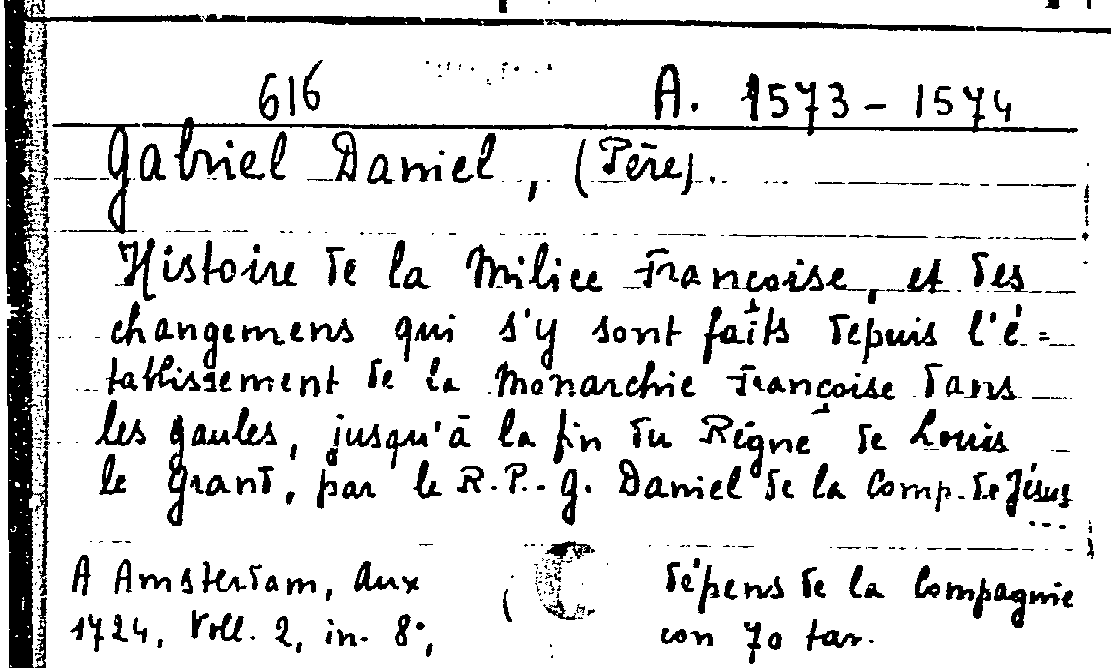 616 A. 1573 - 1574
Gabriel Daniel, (Père).
Histoire de la Milice Françoise, et des
changemens qui s'y sont faits depuis l'é=
tablissement de la Monarchie Françoise dans
les gaules, jusqu'à la fin du Règne de Louis
le Grand, par le R.P. G. Daniel de la Comp. de Jésus
A Amsterdam, Aux dépens de la Compagnie
1724, Voll. 2, in-8°, con 70 tav.